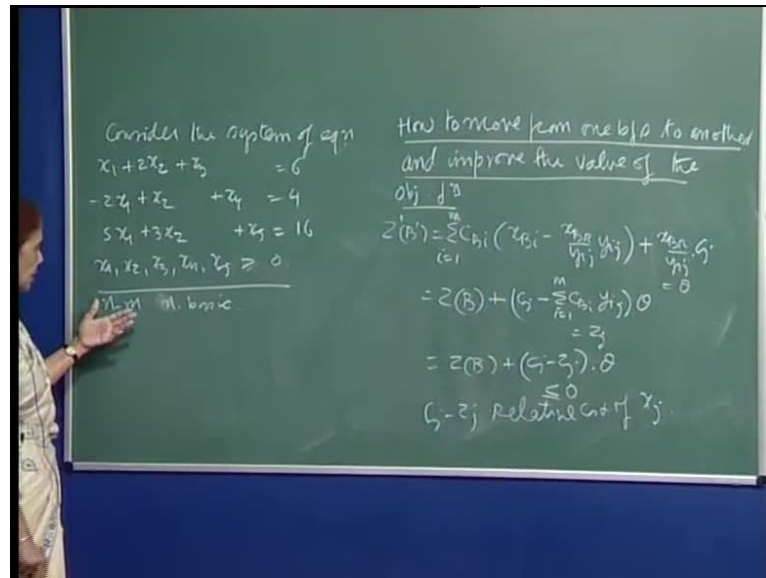 Consider the system of eqn
x₁ + 2x₂ + x₃ = 6
-2x₁ + x₂ + x₄ = 4
5x₁ + 3x₂ + x₅ = 16
x₁, x₂, x₃, x₄, x₅ ≥ 0
n-m n. basic
How to move from one bfs to another
and improve the value of the
obj. fn
Z'(B') = Σ_{i=1}^{m} C_{Bi} (x_{Bi} - x_{Br}/y_{rj} y_{ij}) + x_{Br}/y_{rj} · Cj
= θ
= Z(B) + (Cj - Σ_{i=1}^{m} C_{Bi} y_{ij}) θ
= Zj
= Z(B) + (Cj - Zj) · θ
≤ 0
Cj - Zj Relative cost of xj.